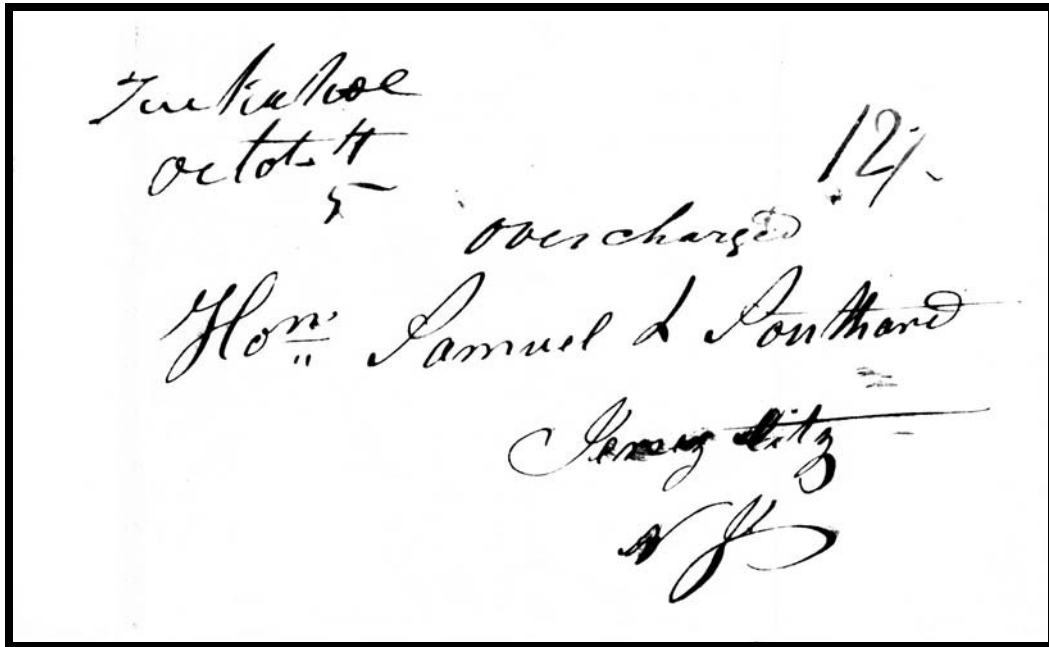 Tuckahoe
Octob. 4
5
12½
overcharged
Honl. Samuel L Southard
Jersey City
N J